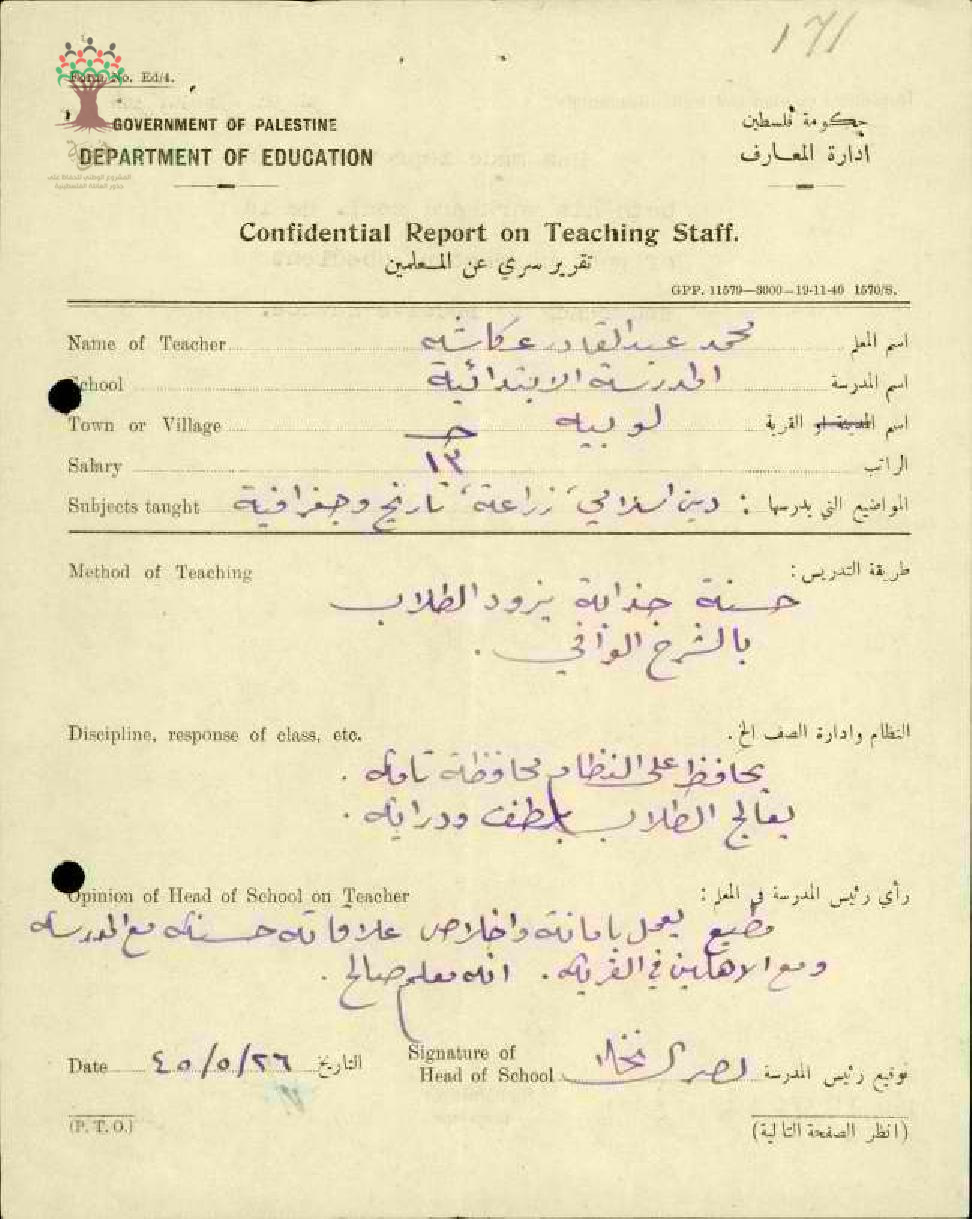 171
Form No. Ed/4.
GOVERNMENT OF PALESTINE
DEPARTMENT OF EDUCATION
حكومة فلسطين
ادارة المعارف
Confidential Report on Teaching Staff.
تقرير سري عن المعلمين
GPP. 11579—3000—19-11-40 1570/S.
Name of Teacher محمد عبدالقادر عكاشه اسم المعلم
School المدرسة الابتدائية اسم المدرسة
Town or Village لوبيه اسم المدينة او القرية
Salary ١٣ الراتب
Subjects taught دين اسلامي، زراعة، تاريخ وجغرافية المواضيع التي يدرسها :
Method of Teaching طريقة التدريس :
حسنة جذابة يزود الطلاب
بالشرح الوافي .
Discipline, response of class, etc. النظام وادارة الصف الخ .
يحافظ على النظام محافظة تامه .
يعالج الطلاب بلطف ودرايه .
Opinion of Head of School on Teacher رأي رئيس المدرسة في المعلم :
مطيع يعمل بامانة واخلاص علاقاته حسنه مع المدرسه
ومع الاهلين في القريه . انه معلم صالح .
Date ٤٥/٥/٢٦ التاريخ Signature of
Head of School توقيع رئيس المدرسة
(P. T. O.)
(انظر الصفحة التالية)